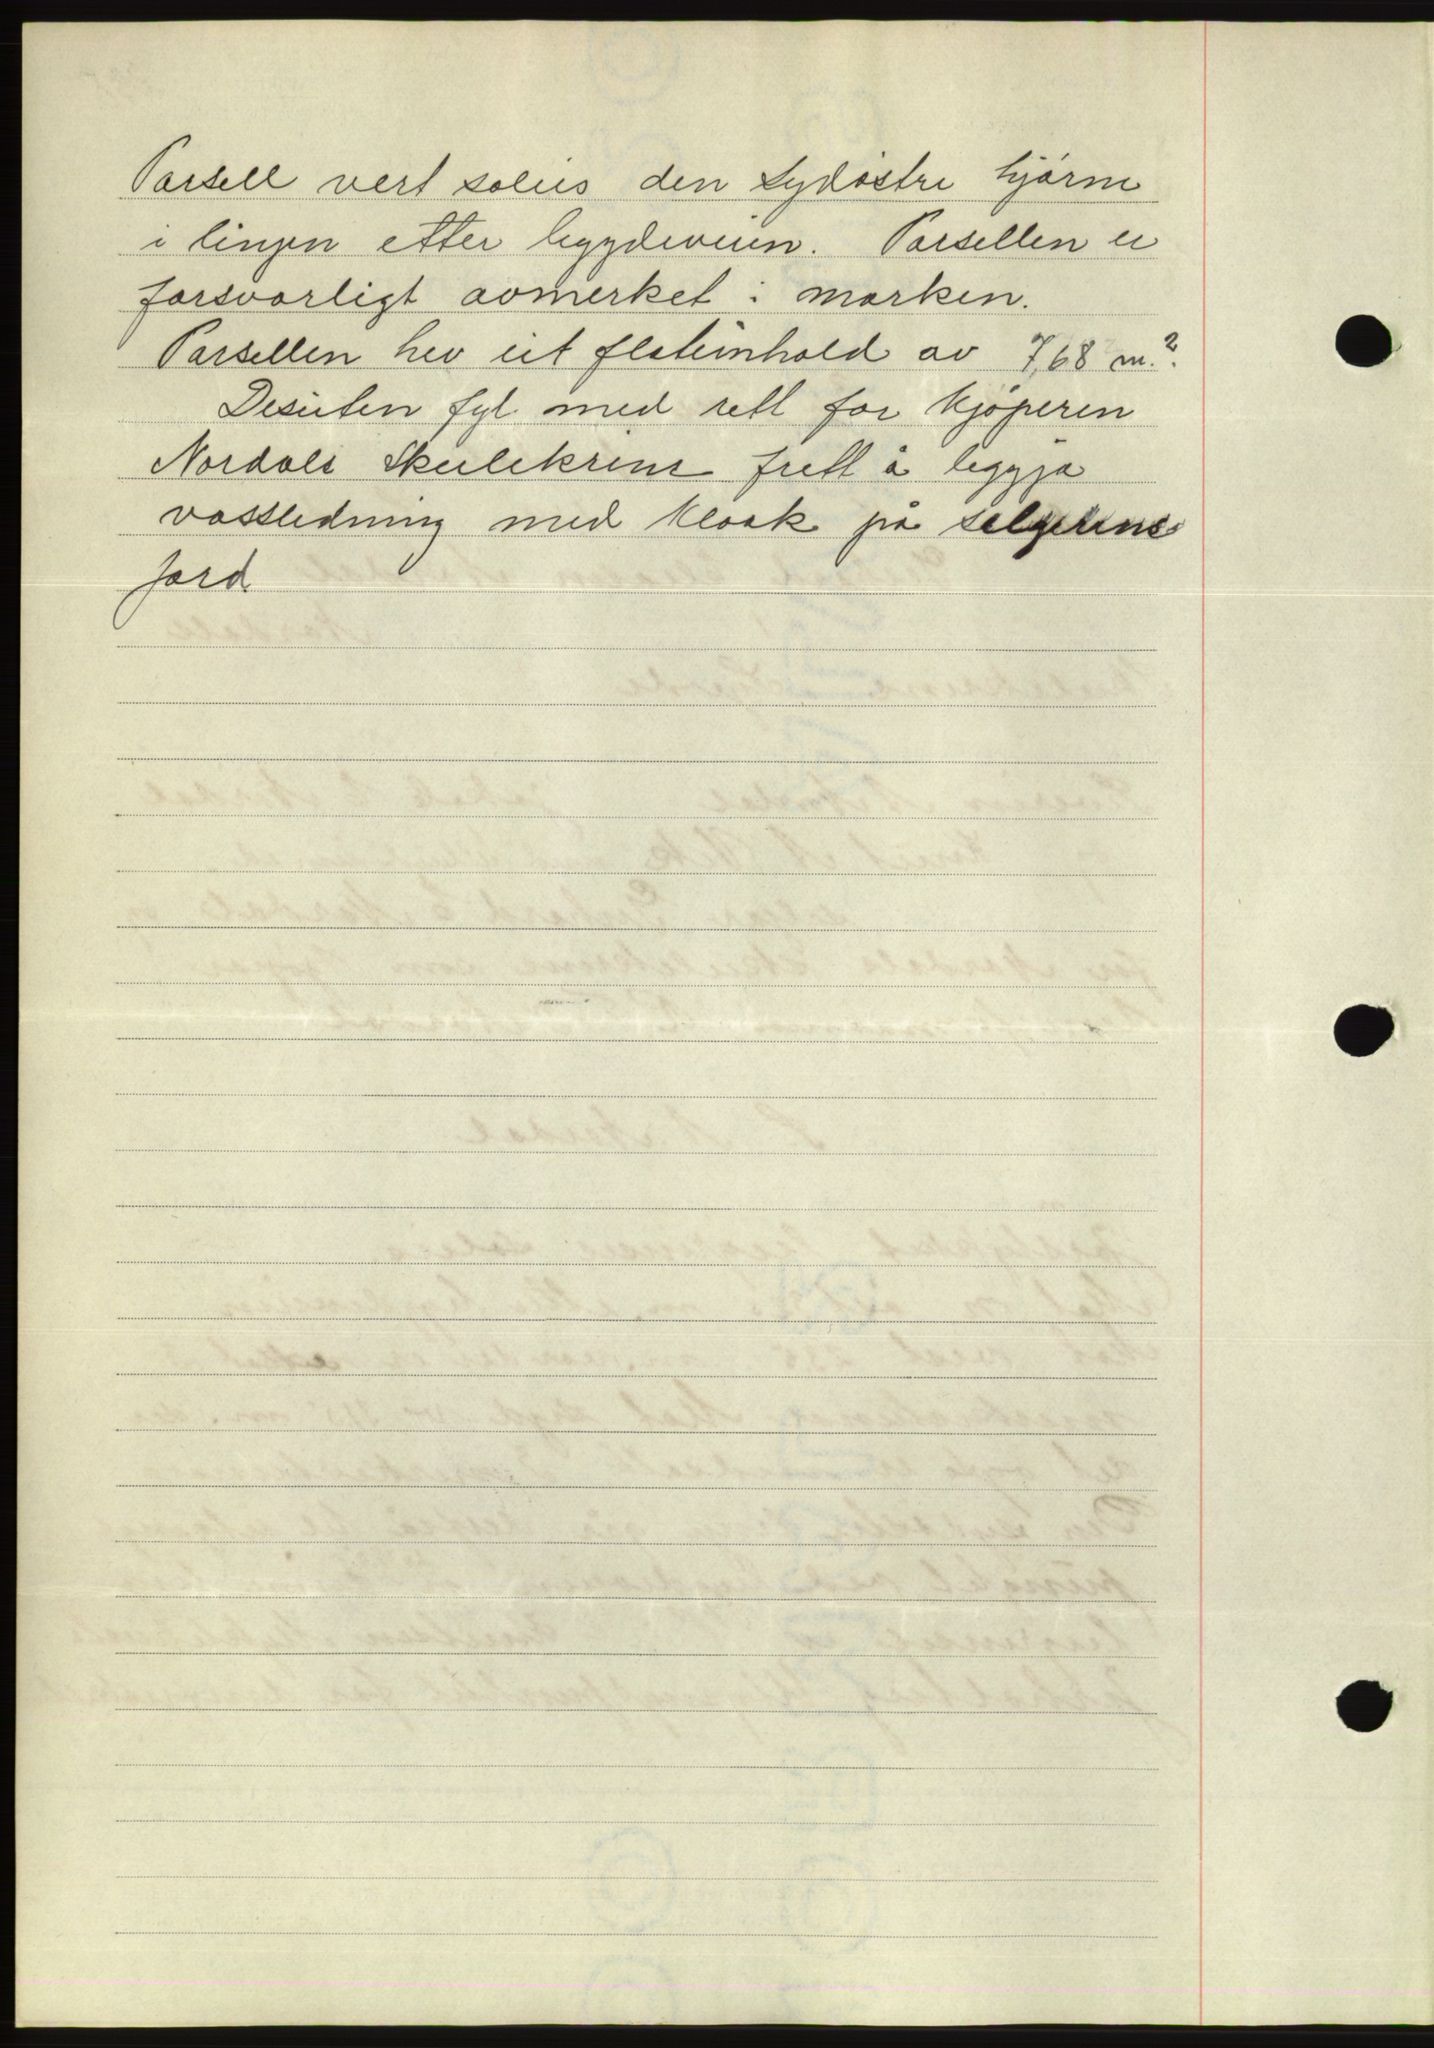 Parsell vert saleis den sydøstre hjørne
i linjen etter bygdeveien. Parsellen er
forsvarligt avmerket i marken.
Parsellen hev eit flateinhold av 7,68 m.²
Desuten fyl med rett for kjøperen
Nordals Skulekrins frett å leggja
vassledning med kloak på selgerens
jord